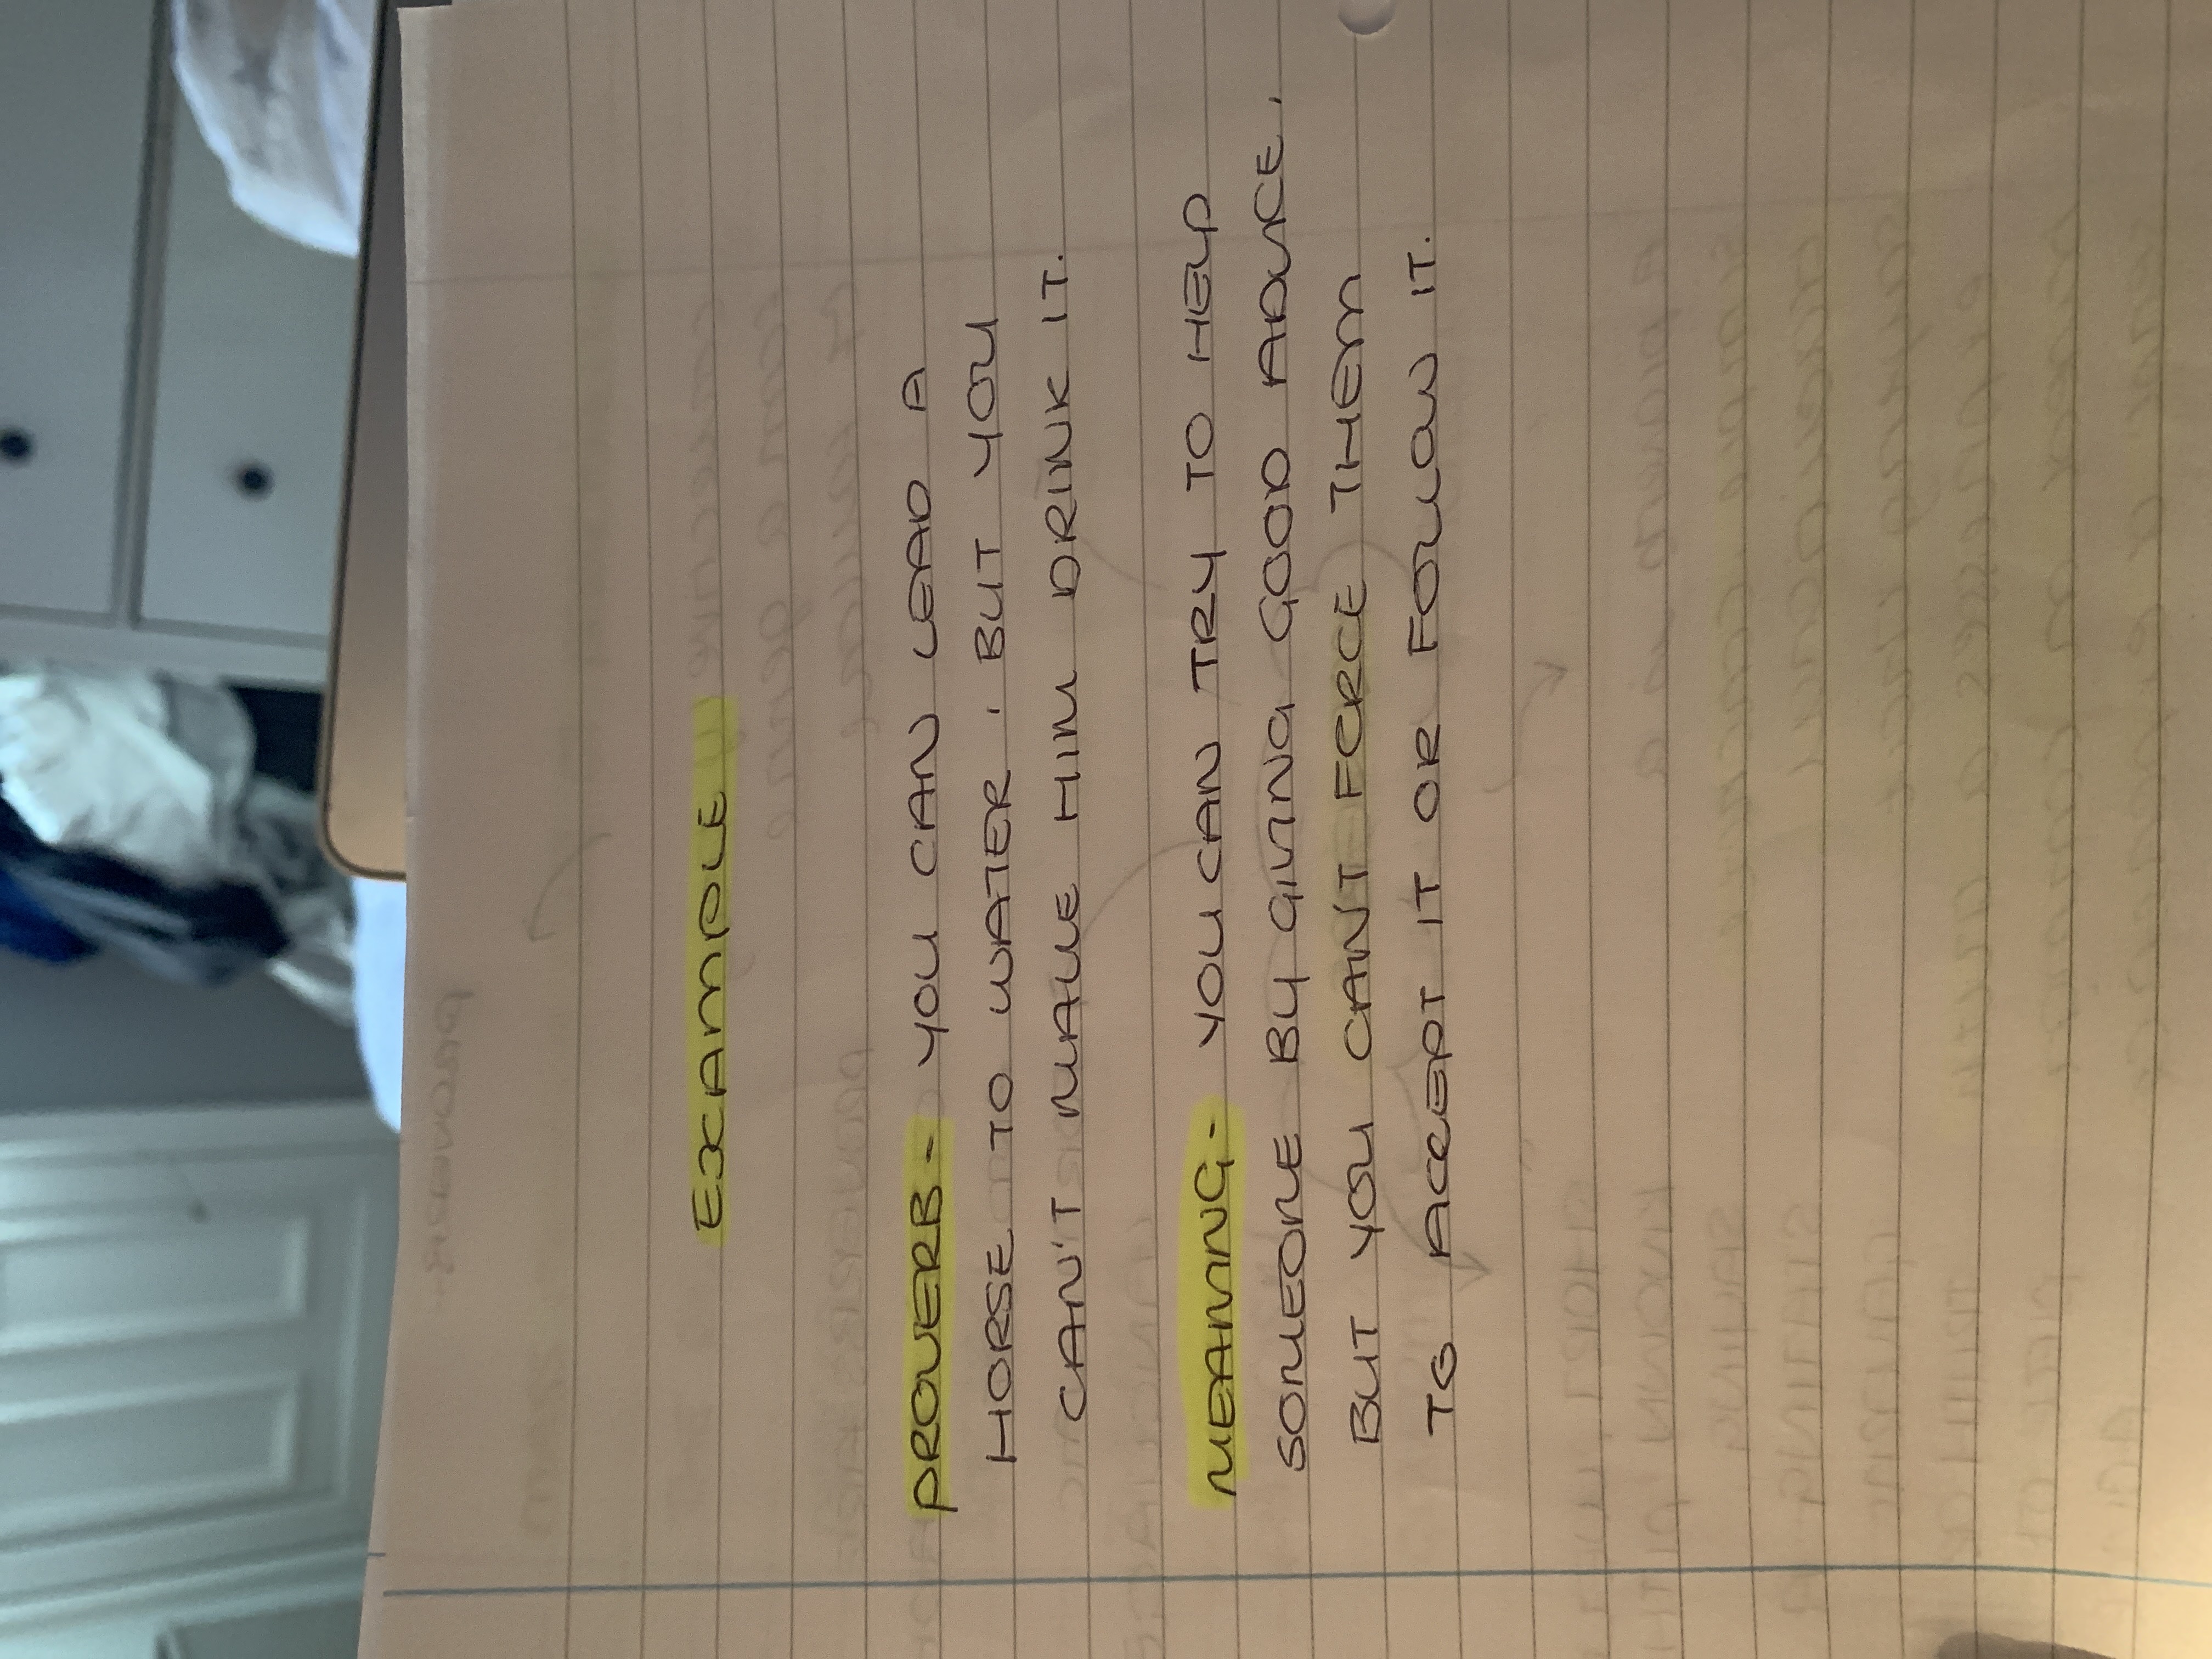 EXAMPLE
PROVERB - YOU CAN LEAD A
HORSE TO WATER, BUT YOU
CAN'T MAKE HIM DRINK IT.
MEANING - YOU CAN TRY TO HELP
SOMEONE BY GIVING GOOD ADVICE,
BUT YOU CANT FORCE THEM
TO ACCEPT IT OR FOLLOW IT.